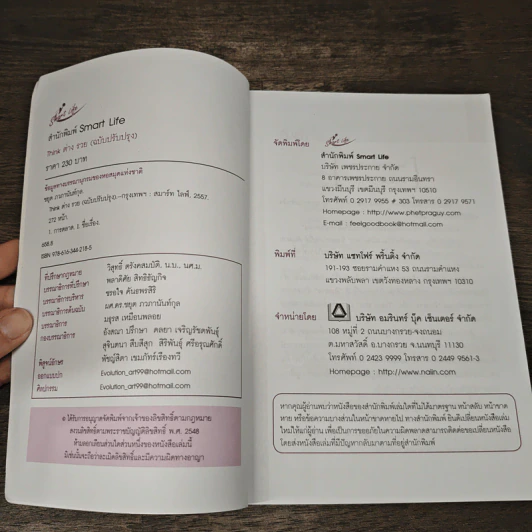 Smart Life
สำนักพิมพ์ Smart Life
Think ต่าง รวย (ฉบับปรับปรุง)
ราคา 230 บาท
ข้อมูลทางบรรณานุกรมของหอสมุดแห่งชาติ
ชยุต ภวภานันท์กุล
Think ต่าง รวย (ฉบับปรับปรุง).--กรุงเทพฯ : สมาร์ท ไลฟ์, 2557.
272 หน้า.
1. การตลาด. I. ชื่อเรื่อง.
658.8
ISBN 978-616-344-218-5
ที่ปรึกษากฎหมาย วิสุทธิ์ ตรังคสมบัติ, น.บ., นศ.ม.
บรรณาธิการที่ปรึกษา พลาดิศัย สิทธิธัญกิจ
บรรณาธิการบริหาร ชรอใจ คันอพรสิริ
บรรณาธิการต้นฉบับ ผศ.ดร.ชยุต ภวภานันท์กุล
บรรณาธิการ มธุรส เหมือนพลอย
กองบรรณาธิการ อังคณา ปรึกษา คลยา เจริญรัชตพันธุ์
สุจินตนา สืบสีสุก สิริพันธุ์ ศรียรุณศักดิ์
พิสูจน์อักษร พัชญ์สิตา เขมภัทร์เรืองทวี
ออกแบบปก Evolution_art99@hotmail.com
ศิลปกรรม Evolution_art99@hotmail.com
ได้รับการอนุญาตจัดพิมพ์จากเจ้าของลิขสิทธิ์ตามกฎหมาย
สงวนลิขสิทธิ์ตามพระราชบัญญัติลิขสิทธิ์ พ.ศ. 2548
ห้ามลอกเลียนส่วนใดส่วนหนึ่งของหนังสือเล่มนี้
มิเช่นนั้นจะถือว่าละเมิดลิขสิทธิ์และมีความผิดทางอาญา
จัดพิมพ์โดย
Smart Life
สำนักพิมพ์ Smart Life
บริษัท เพชรประกาย จำกัด
8 อาคารเพชรประกาย ถนนรามอินทรา
แขวงมีนบุรี เขตมีนบุรี กรุงเทพฯ 10510
โทรศัพท์ 0 2917 9955 # 303 โทรสาร 0 2917 9571
Homepage : http://www.phetpraguy.com
E-mail : feelgoodbook@hotmail.com
พิมพ์ที่ บริษัท แชทโฟร์ พริ้นติ้ง จำกัด
191-193 ซอยรามคำแหง 53 ถนนรามคำแหง
แขวงพลับพลา เขตวังทองหลาง กรุงเทพฯ 10310
จำหน่ายโดย บริษัท อมรินทร์ บุ๊ค เซ็นเตอร์ จำกัด
108 หมู่ที่ 2 ถนนบางกรวย-จงถนอม
ต.มหาสวัสดิ์ อ.บางกรวย จ.นนทบุรี 11130
โทรศัพท์ 0 2423 9999 โทรสาร 0 2449 9561-3
Homepage : http://www.naiin.com
หากคุณผู้อ่านพบว่าหนังสือของสำนักพิมพ์เล่มใดที่ไม่ได้มาตรฐาน หน้าสลับ หน้าขาด
หาย หรือข้อความบางส่วนในหน้าขาดหายไป ทางสำนักพิมพ์ ยินดีเปลี่ยนหนังสือเล่ม
ใหม่ให้แก่ผู้อ่าน เพื่อเป็นการขออภัยในความผิดพลาดสามารถติดต่อขอเปลี่ยนหนังสือ
โดยส่งหนังสือเล่มที่มีปัญหากลับมาตามที่อยู่สำนักพิมพ์